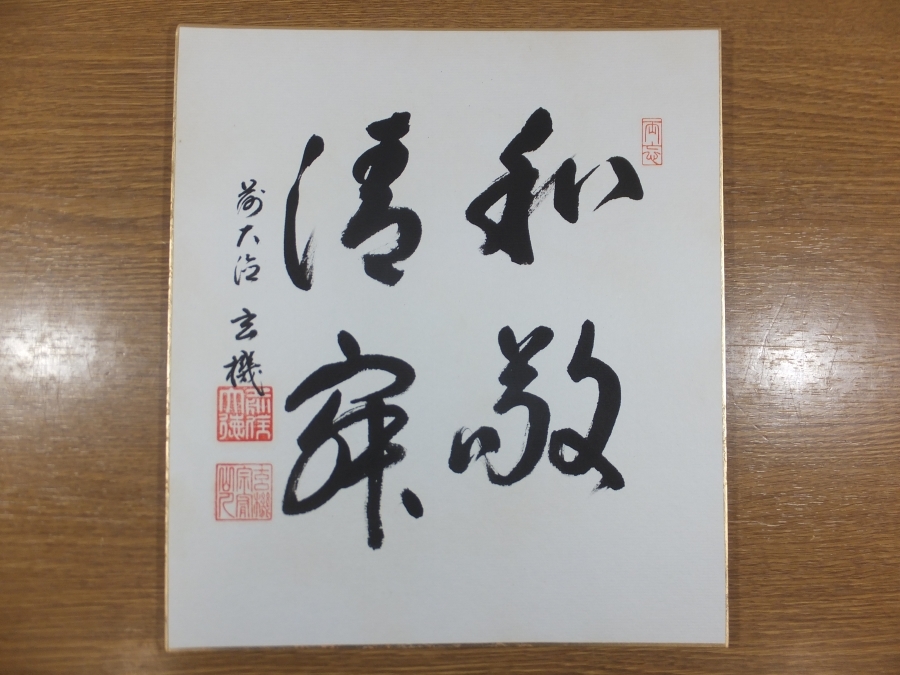 和敬
清寂
前大徳 玄機